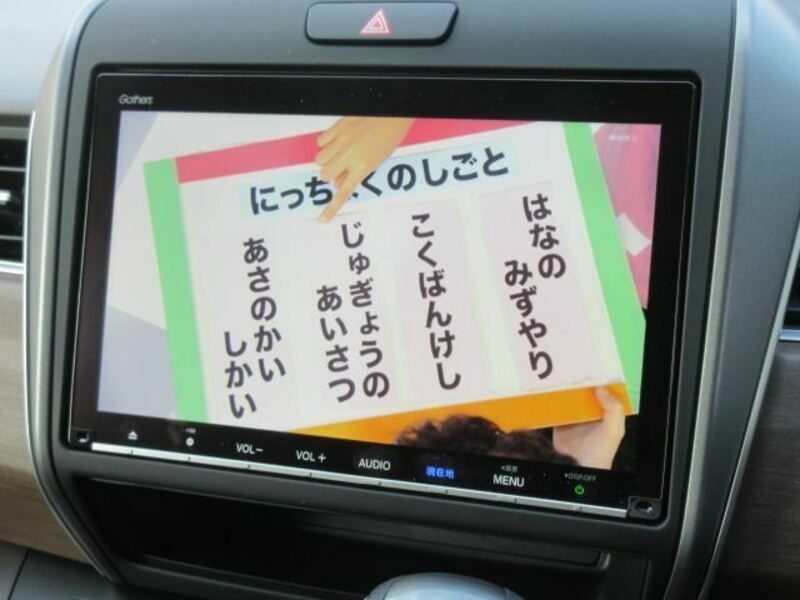 Gathers
NHK
にっちょくのしごと
はなの
みずやり
こくばんけし
じゅぎょうの
あいさつ
あさのかい
しかい
VOL−
VOL +
AUDIO
現在地
MENU